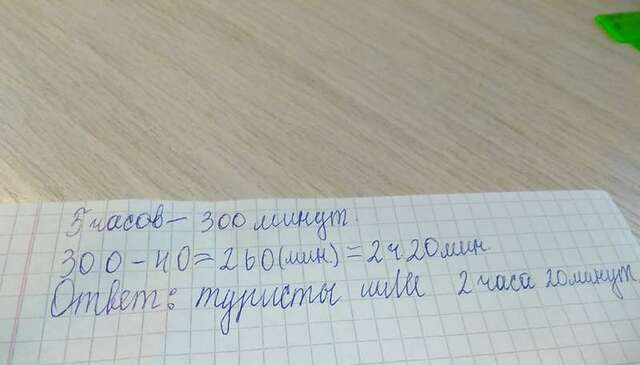 5 часов - 300 минут.
300 - 40 = 260 (мин) = 2ч 20мин
Ответ: туристы шли 2 часа 20 минут